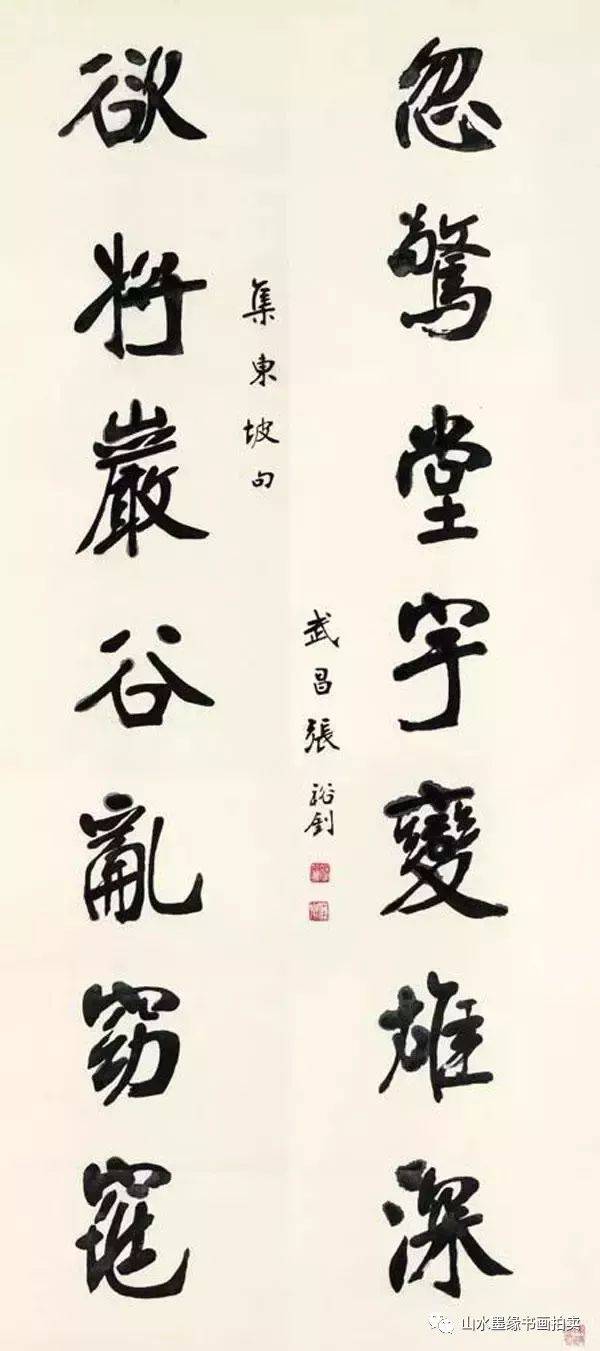 忽驚堂宇變雄深
欲將巖谷亂窈窕
集東坡句
武昌張裕釗
山水墨缘书画拍卖